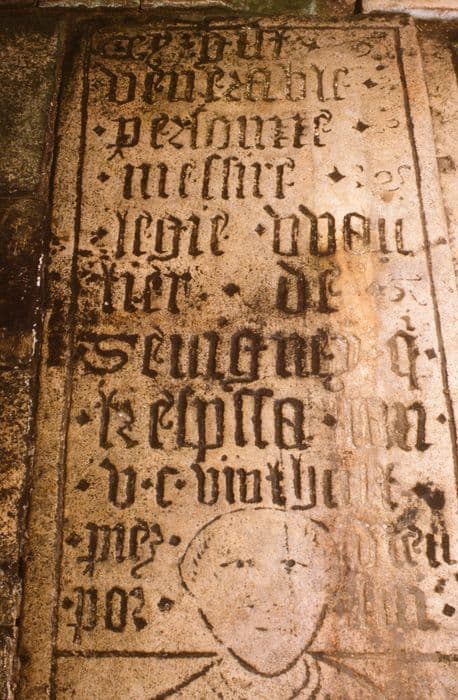 cy gist
venerable
persone
messire
legie
tier de
Sevigney q
trespssa lan
v c vint huit
priez dieu
por luy